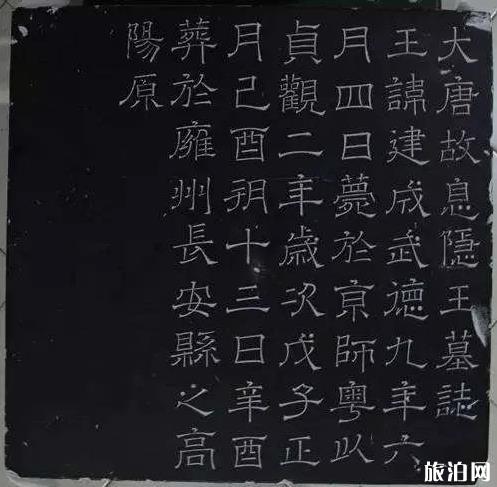 大唐故息隱王墓誌
王諱建成武德九年六
月四日薨於京師粵以
貞觀二年歲次戊子正
月己酉朔十三日辛酉
葬於雍州長安縣之高
陽原
旅泊网